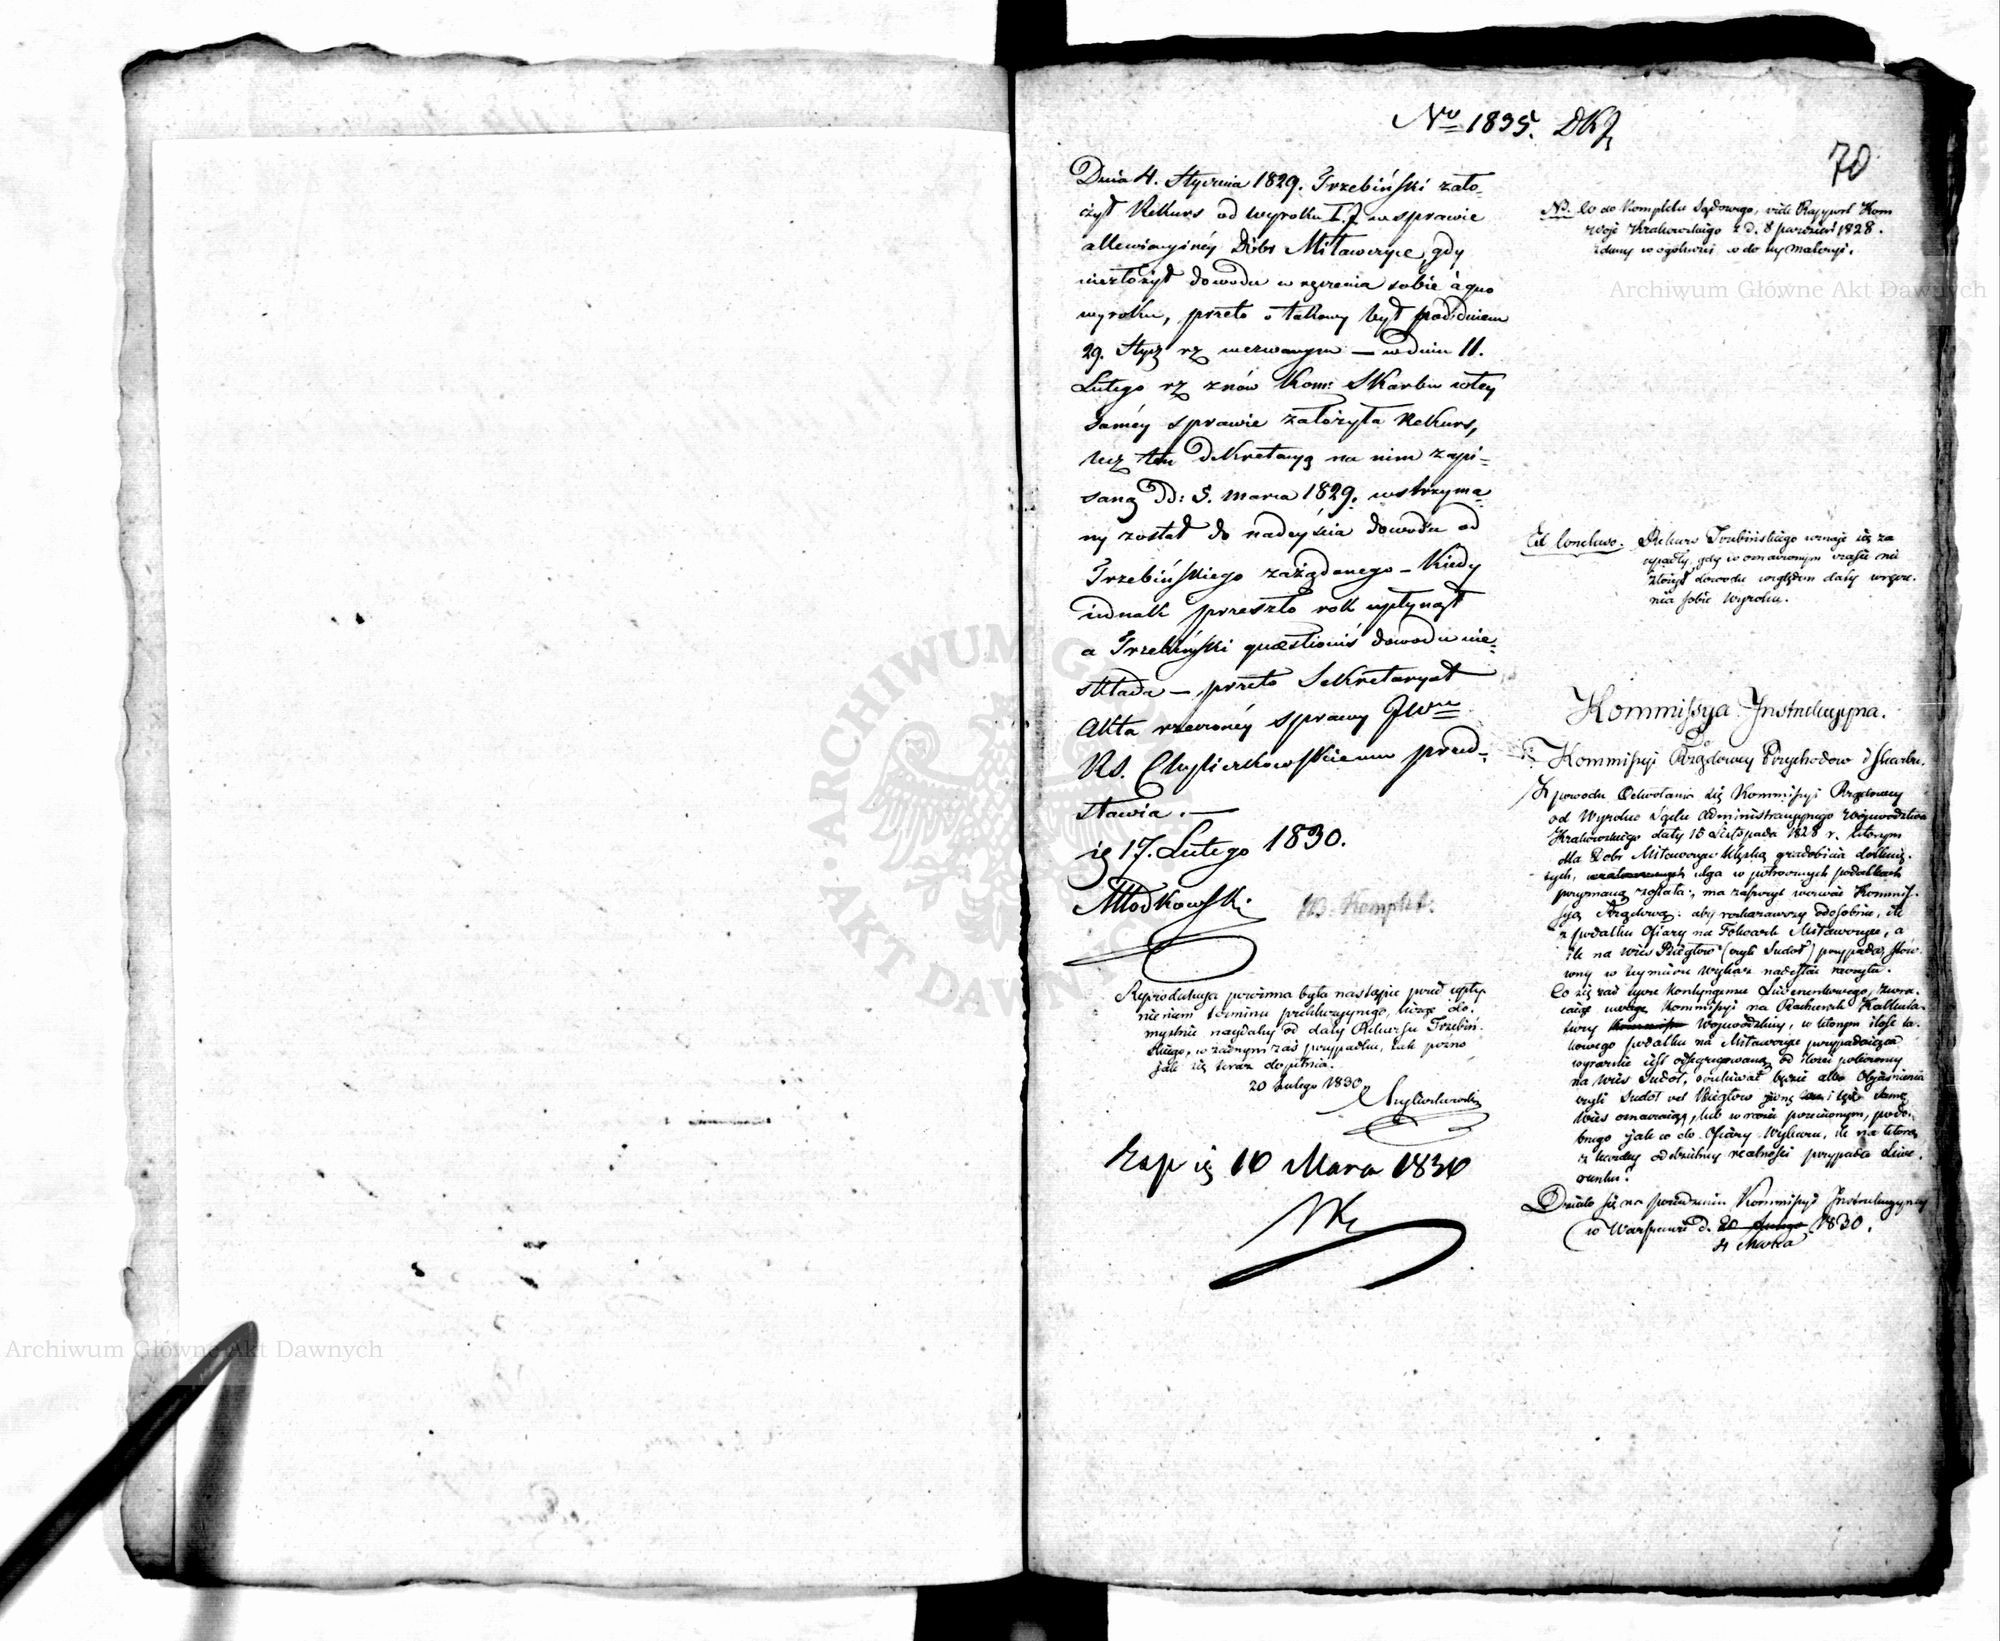 No 1835.
70
Dnia 4. Stycznia 1829. Trzebiński zało-
żył Rekurs od wyroku I. J. w sprawie
allewiacyinéy Dóbr Miławczyce, gdy
niezłożył dowodu wręczenia sobie à quo
wyroku, przeto o takowy był pod dniem
29. Stycz rz wezwanym — w dniu 11.
Lutego rz znów Kom: Skarbu w téy
saméy sprawie założyła Rekurs,
lecz ten dekretacyą na nim zapi-
saną dd: 5. marca 1829. wstrzyma-
ny został do nadeyścia dowodu od
Trzebińskiego zażądanego — Kiedy
iednak przeszło rok upłynął
a Trzebiński quaestionis dowodu nie-
składa — przeto Sekretaryat
Akta rzeczonéy sprawy JWu
RS. Chyliczkowskiemu przed-
stawia. —
17. Lutego 1830.
Młodkowski
NB. Komplet.
Reprodukcya powinna była nastąpić przed upły-
nieniem terminu preklucyjnego, licząc do-
myślnie naydaley od daty Rekursu Trzebiń-
skiego, w żadnym zaś przypadku, tak pozno
jak się teraz dopełnia.
20 Lutego 1830
Chyliczkowski
Exp 10 Marca 1830
NB. Co do Kompletu Sądowego, vide Rapport Kom
Woje Krakowskiego z d. 8 paździer 1828.
zdany w ogólności co do tey materyi.
Ad Concluso. Rekurs Trzebińskiego uznaje się za
upadły, gdy w oznaczonym czasie nie
złożył dowodu względem daty wręcze-
nia sobie Wyroku.
Kommissya Instrukcyjna.
Do
Kommissyi Rządowey Przychodow i Skarbu.
Z powodu Odwołania się Kommissyi Rządowey
od Wyroku Sądu Administracyjnego Województwa
Krakowskiego daty 15 Listopada 1828 r. którym
dla Dobr Miławczyce klęską gradobicia dotknię-
tych, ulga w potrocznych podatkach
przyznaną została; ma zaszczyt wezwać Kommis-
syą Rządową: aby rozkazawszy odosobnić, ile
z podatku Ofiary na Folwark Miławczyce, a
ile na Wieś Bieglow (czyli Sudoł) przypada, stow-
wny w tey mierze Wykaz nadesłać raczyła.
Co się zaś tycze Kontyngensu Liwerunkowego, zwra-
cając uwagę Kommissyi na Rachunek Kalkula-
tury Wojewódzkiey, w którym ilość ta-
kowego podatku na Miławczyce przypadająca
wyraźnie jest odsegregowaną od ilości policzoney
na Wieś Sudoł, oczekiwać będzie albo Objaśnienia
czyli Sudoł vel Bieglow jedną i tęż samę
Wieś oznaczają, lub w razie przeciwnym, podo-
bnego jak co do Ofiary Wykazu, ile na którą
z każdey oddzielney realności przypada Liwe-
runku?
Działo się na posiedzeniu Kommissyi Instrukcyjney
w Warszawie d. 20 Lutego 1830.
4 Marca
Archiwum Główne Akt Dawnych
Archiwum Główne Akt Dawnych
ARCHIWUM GŁÓWNE AKT DAWNYCH